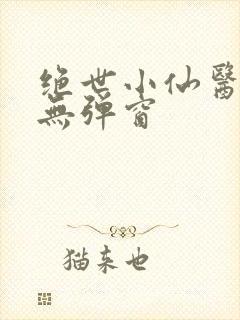 绝世小仙醫
無彈窗
猫来也